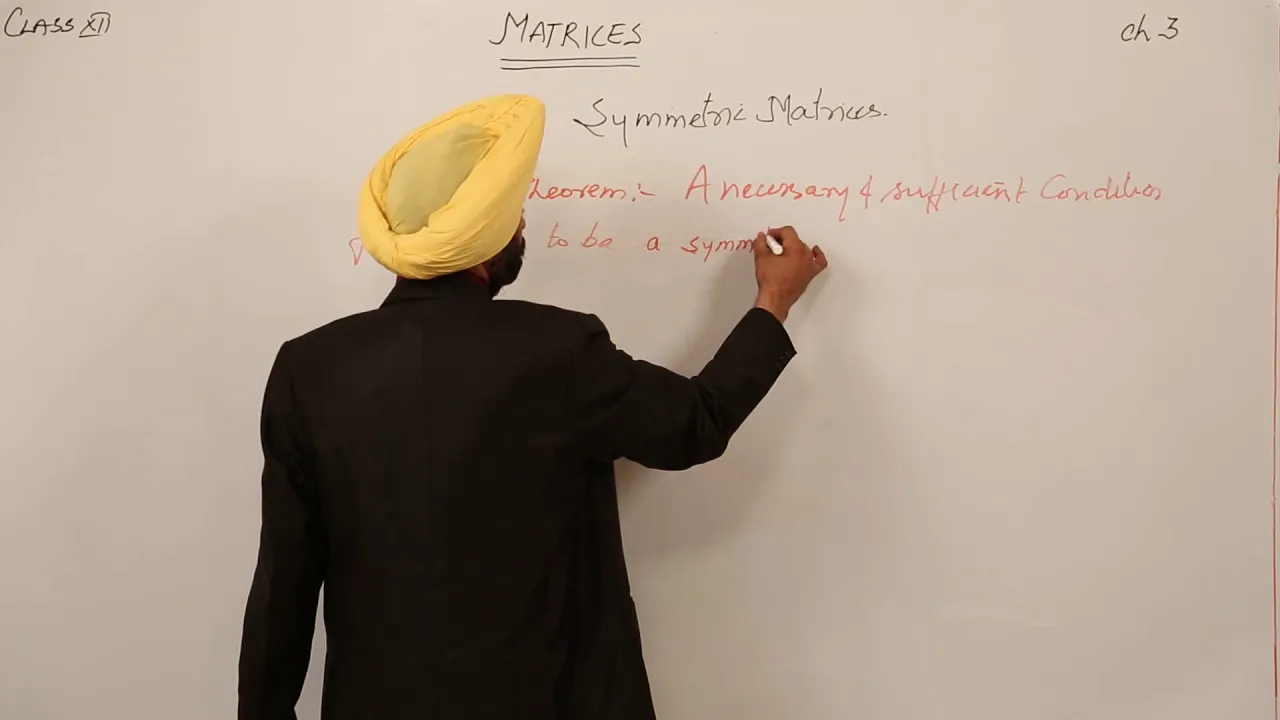 CLASS XII
MATRICES
ch-3
Symmetric Matrices.
heorem:- A necessary & sufficient Condition
to be a symm